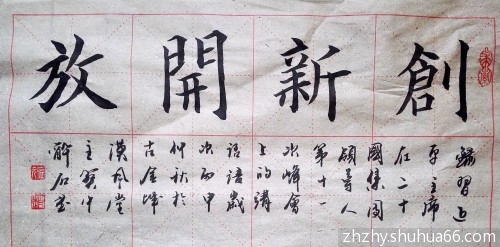 創新開放
錄習近
平主席
在二十
國集團
領導人
第十一
次峰會
上的講
話語歲
次丙申
仲秋於
古金城
漢風堂
主
石書
zhzhy.shuhua66.com